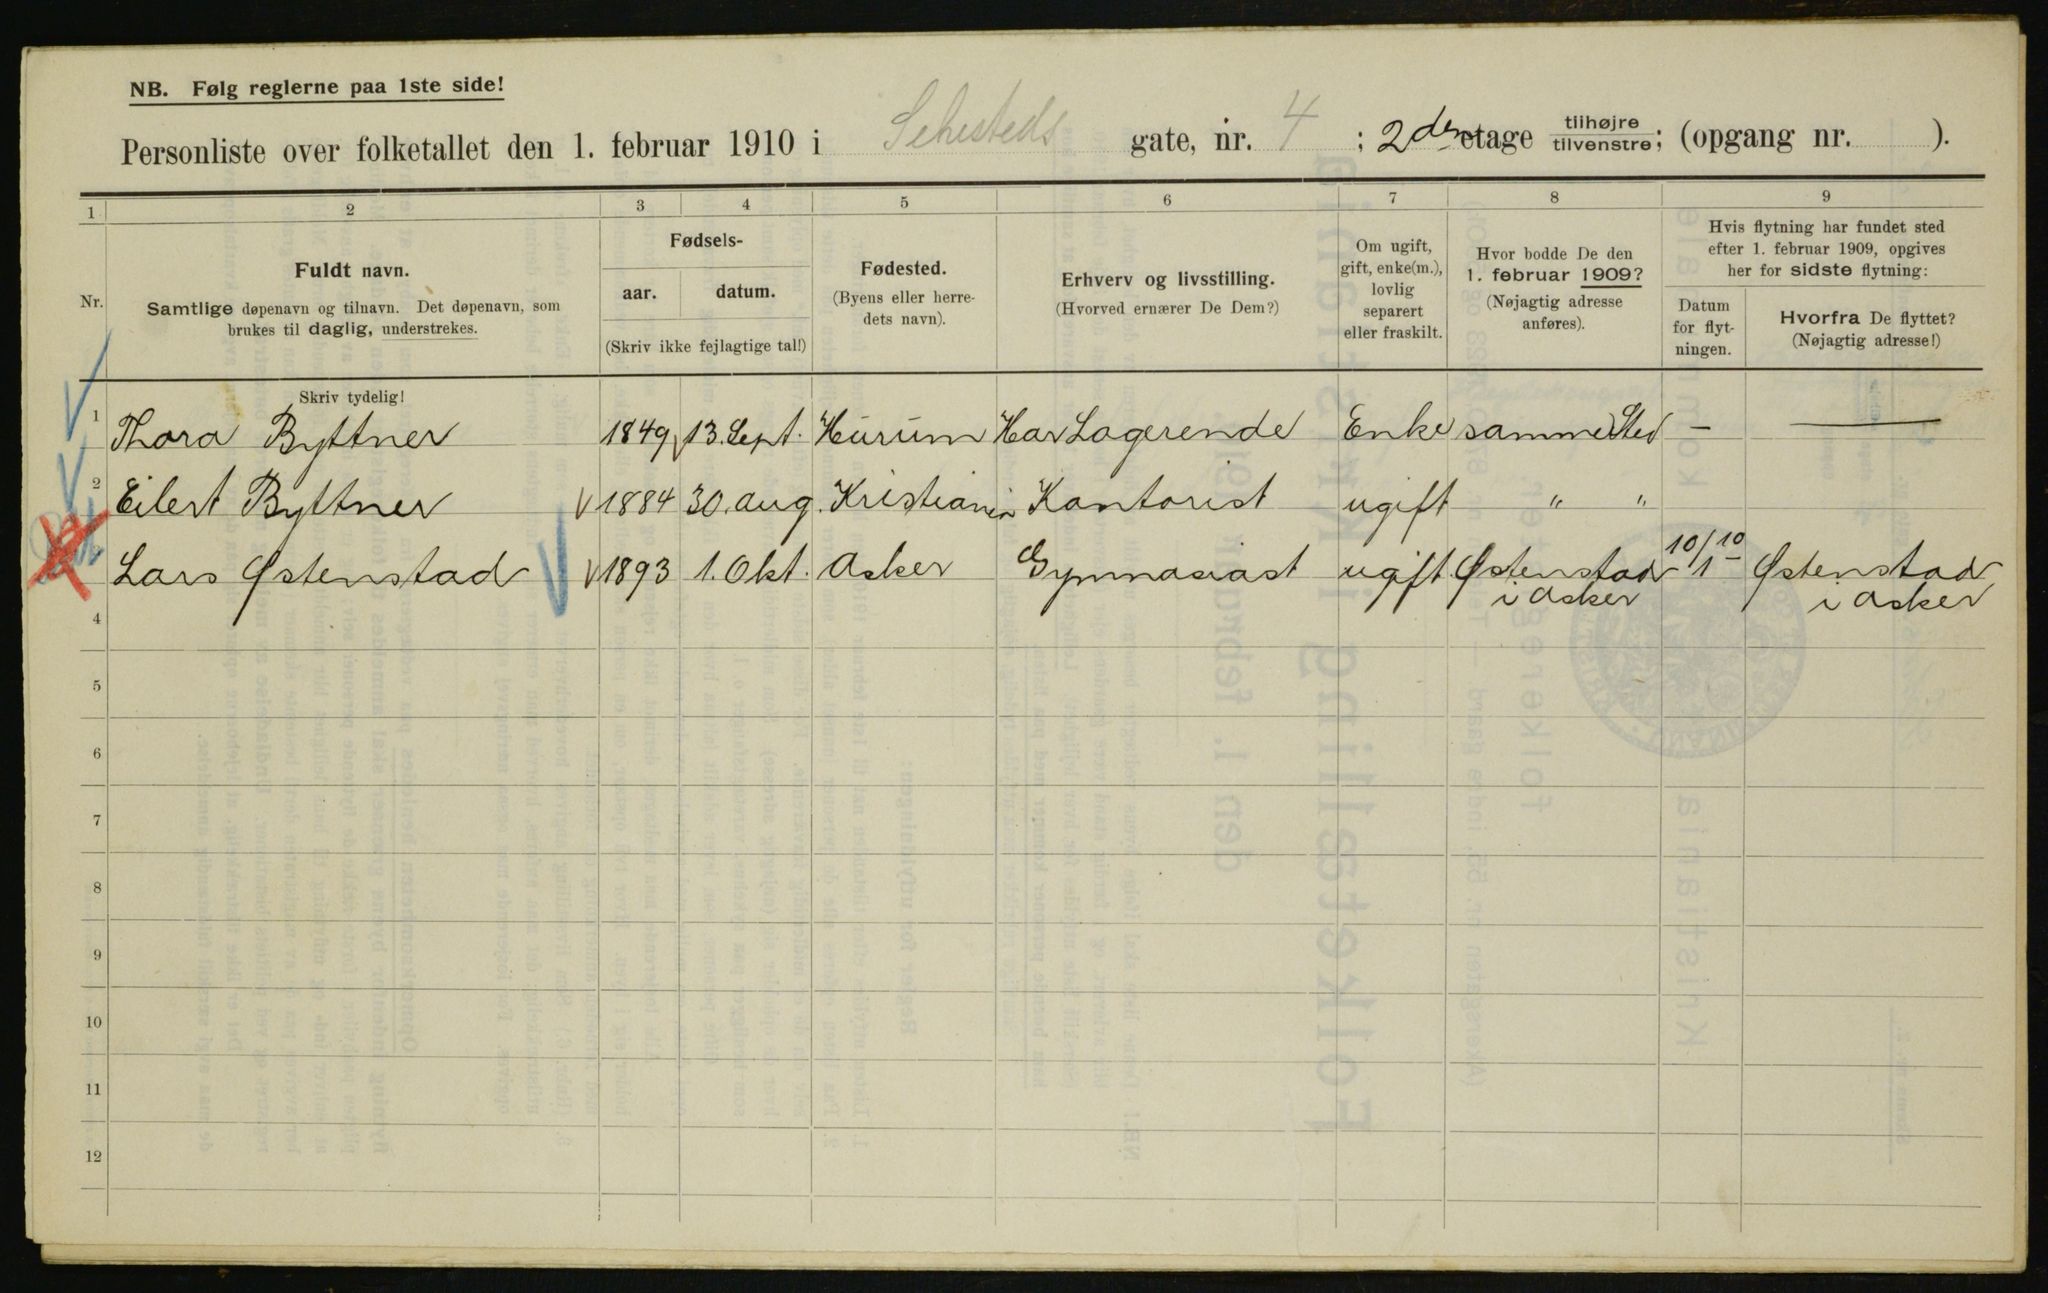 NB. Følg reglerne paa 1ste side!
Personliste over folketallet den 1. februar 1910 i Sehesteds gate, nr. 4 ; 2den etage tilhøjre tilvenstre; (opgang nr. ).
1 2 3 4 5 6 7 8 9
Nr.
Fuldt navn.
Samtlige døpenavn og tilnavn. Det døpenavn, som
brukes til daglig, understrekes.
Fødsels-
aar. datum.
(Skriv ikke fejlagtige tal!)
Fødested.
(Byens eller herre-
dets navn).
Erhverv og livsstilling.
(Hvorved ernærer De Dem?)
Om ugift,
gift, enke(m.),
lovlig
separert
eller fraskilt.
Hvor bodde De den
1. februar 1909?
(Nøjagtig adresse
anføres).
Hvis flytning har fundet sted
efter 1. februar 1909, opgives
her for sidste flytning:
Datum
for flyt-
ningen.
Hvorfra De flyttet?
(Nøjagtig adresse!)
Skriv tydelig!
1 Thora Byttner 1849 13. Sept. Hurum Har Logerende Enke samme Sted — —
2 Eilert Byttner 1884 30. aug. Kristiania Kontorist ugift " "
Lars Østenstad 1893 1. Okt. Asker Gymnasiast ugift Østenstad i Asker 10/1 10 Østenstad i Asker
4
5
6
7
8
9
10
11
12